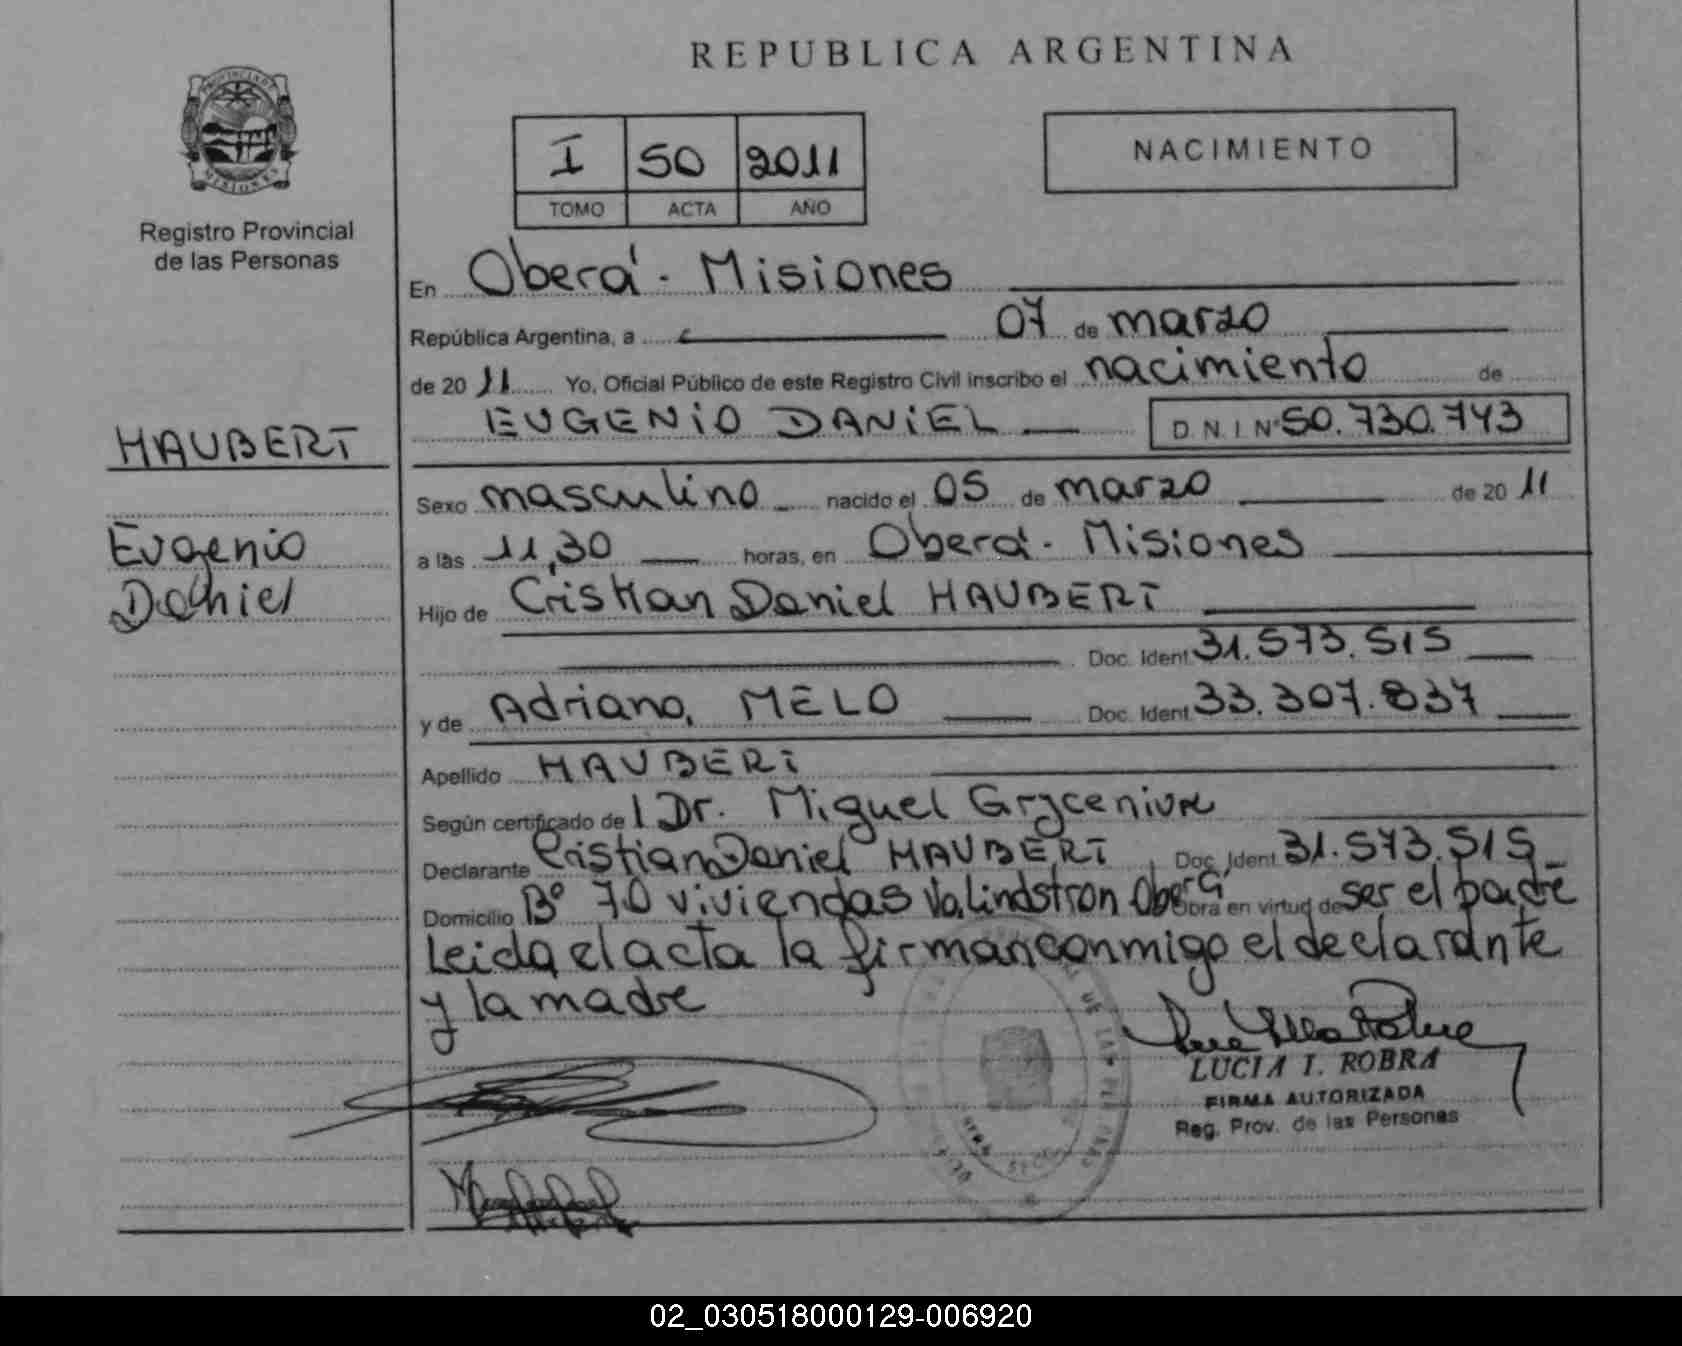 REPUBLICA ARGENTINA
PROVINCIA DE
MISIONES
Registro Provincial
de las Personas
I 50 2011
TOMO ACTA AÑO
NACIMIENTO
En Oberá - Misiones
República Argentina, a 07 de marzo
de 20 11 Yo, Oficial Público de este Registro Civil inscribo el nacimiento de
EUGENIO DANIEL D.N.I. Nº 50.730.743
HAUBERT
Eugenio
Daniel
Sexo masculino nacido el 05 de marzo de 20 11
a las 11,30 horas, en Oberá - Misiones
Hijo de Cristian Daniel HAUBERT
Doc. Ident. 31.573.515
y de Adriana, MELO Doc. Ident. 33.307.837
Apellido HAUBERT
Según certificado del Dr. Miguel
Declarante Cristian Daniel HAUBERT, Doc. Ident. 31.573.515
Domicilio Bº 70 viviendas Va. Lindstron Oberá, obra en virtud de ser el padre
Leida el acta la firman conmigo el declarante
y la madre
LUCIA I. ROBRA
FIRMA AUTORIZADA
Reg. Prov. de las Personas
DE LAS PERSONAS
02_030518000129-006920